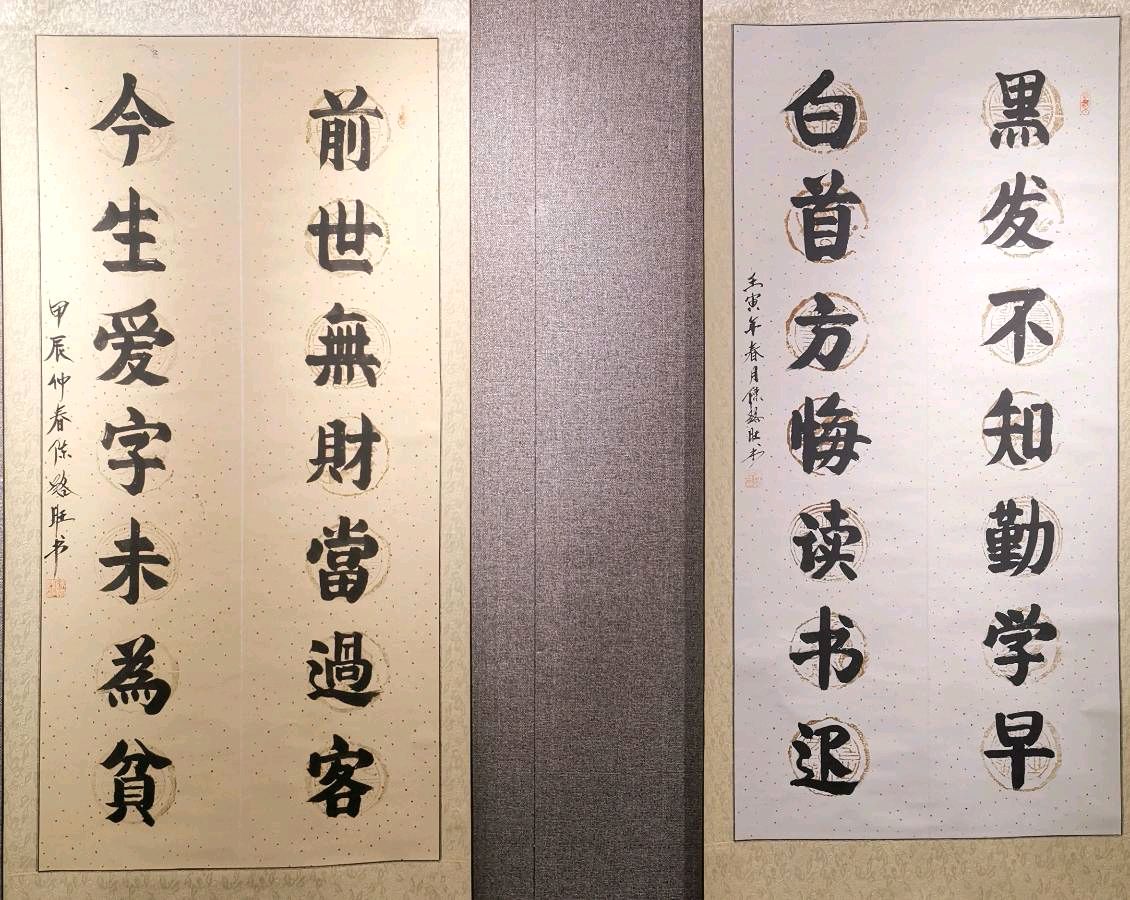 黑发不知勤学早
白首方悔读书迟
壬寅年春月陈路旺书
前世無財當過客
今生爱字未為貧
甲辰仲春陈路旺书